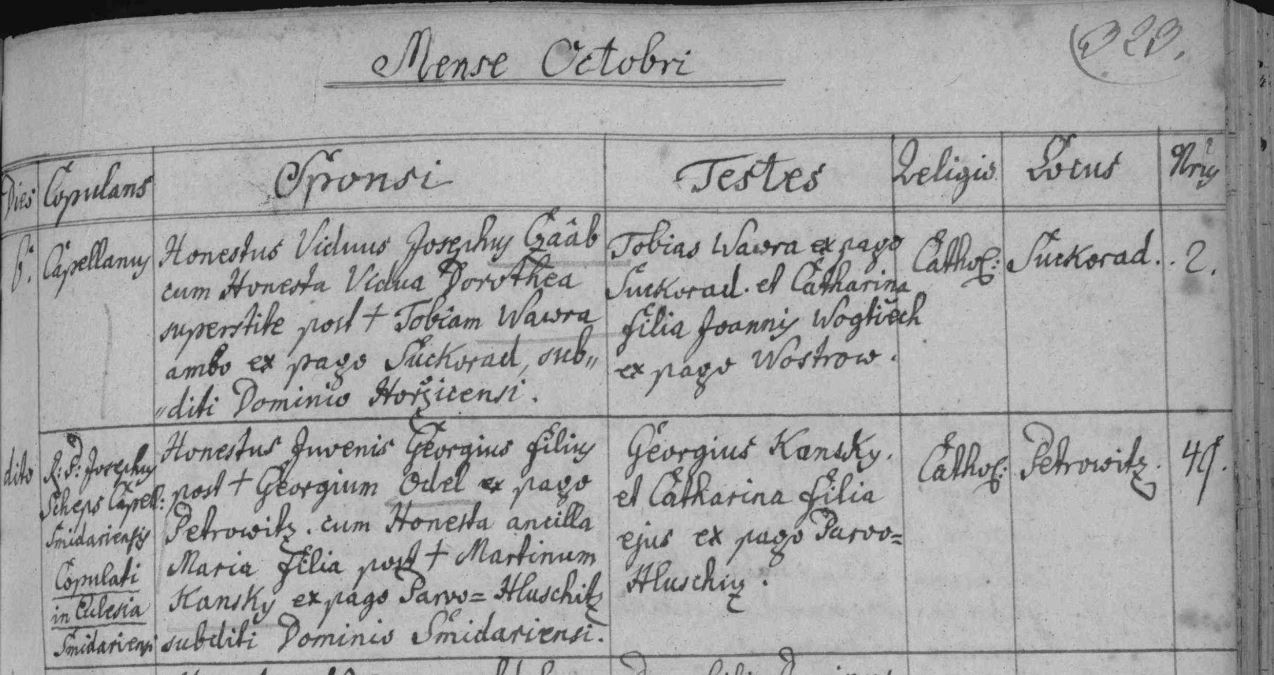 Mense Octobri
323.
Dies Copulans Sponsi Testes Religio Locus Nrus
6. Capellanus
Honestus Viduus Josephus Czaab
cum Honesta Vidua Dorothea
superstite post † Tobiam Wawra
ambo ex pago Suckorad, sub„
„diti Dominio Horžicensi.
Tobias Wawra ex pago
Suckorad. et Catharina
filia Joannis Wogtiech
ex pago Wostrow.
Cathol:
Suckorad.
2.
dito
R: P: Josephus
Scheps Capell:
Smidariensis
Copulati
in Eclesia
Smidariensi
Honestus Juvenis Georgius filius
post † Georgium Odel ex pago
Petrowitz. cum Honesta ancilla
Maria filia post † Martinum
Kansky ex pago Parvo= Hluschitz
subditi Dominio Smidariensi.
Georgius Kansky.
et Catharina filia
ejus ex pago Parvo=
Hluschiz.
Cathol:
Petrowitz.